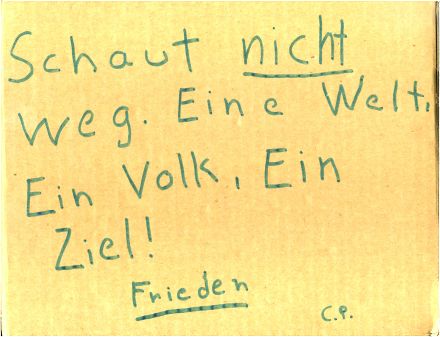 Schaut nicht
weg. Eine Welt,
Ein Volk, Ein
Ziel!
Frieden
C.P.